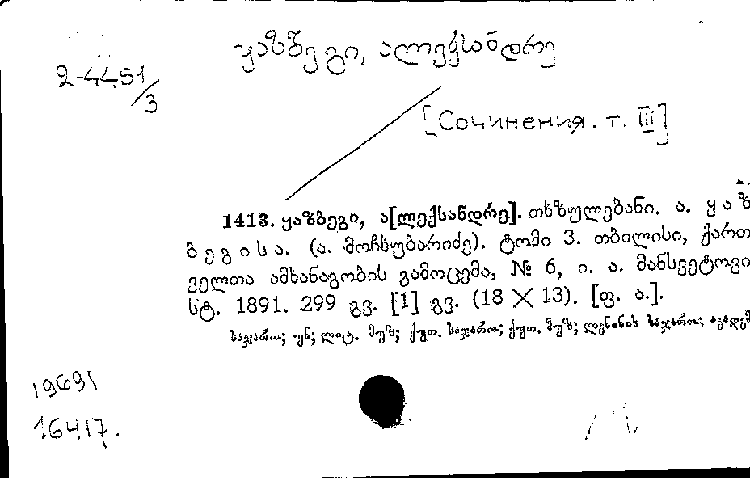 ყაზბეგი, ალექსანდრე
2-4451/3
[Сочинения. т. III]
1413. ყაზბეგი, ა[ლექსანდრე]. თხზულებანი. ა. ყაზ
ბეგისა. (ა. მოჩხუბარიძე). ტომი 3. თბილისი, ქართ
ველთა ამხანაგობის გამოცემა, № 6, ი. ა. მანსვეტოვი
სტ. 1891. 299 გვ. [1] გვ. (18 X 13). [ფ. ა.].
საჯარო; უნ; ლიტ. მუზ; ქუთ. საჯარო; ქუთ. მუზ; ლენინის საჯარო;
19691
16417.